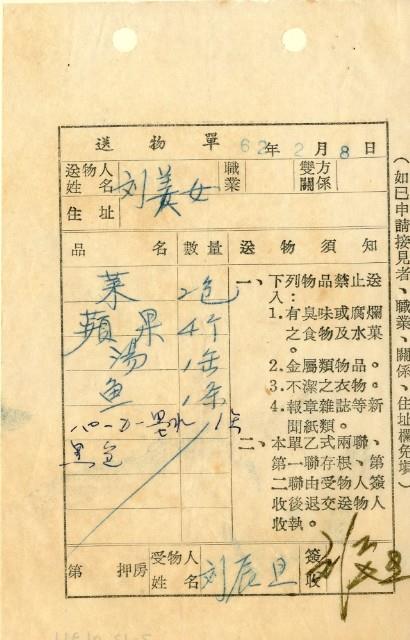 送物單 62年2月8日
送物人姓名 刘美女 職業 雙方關係
住址
品名 數量 送物須知
菜 2包
蘋果 4个
湯 1缶
魚 1条
一、下列物品禁止送入：
1. 有臭味或腐爛之食物及水菓。
2. 金屬類物品。
3. 不潔之衣物。
4. 報章雜誌等新聞紙類。
二、本單乙式兩聯、第一聯存根、第二聯由受物人簽收後退交送物人收執。
第 押房 受物人姓名 刘辰旦 簽收
（如已申請接見者、職業、關係、住址欄免填）